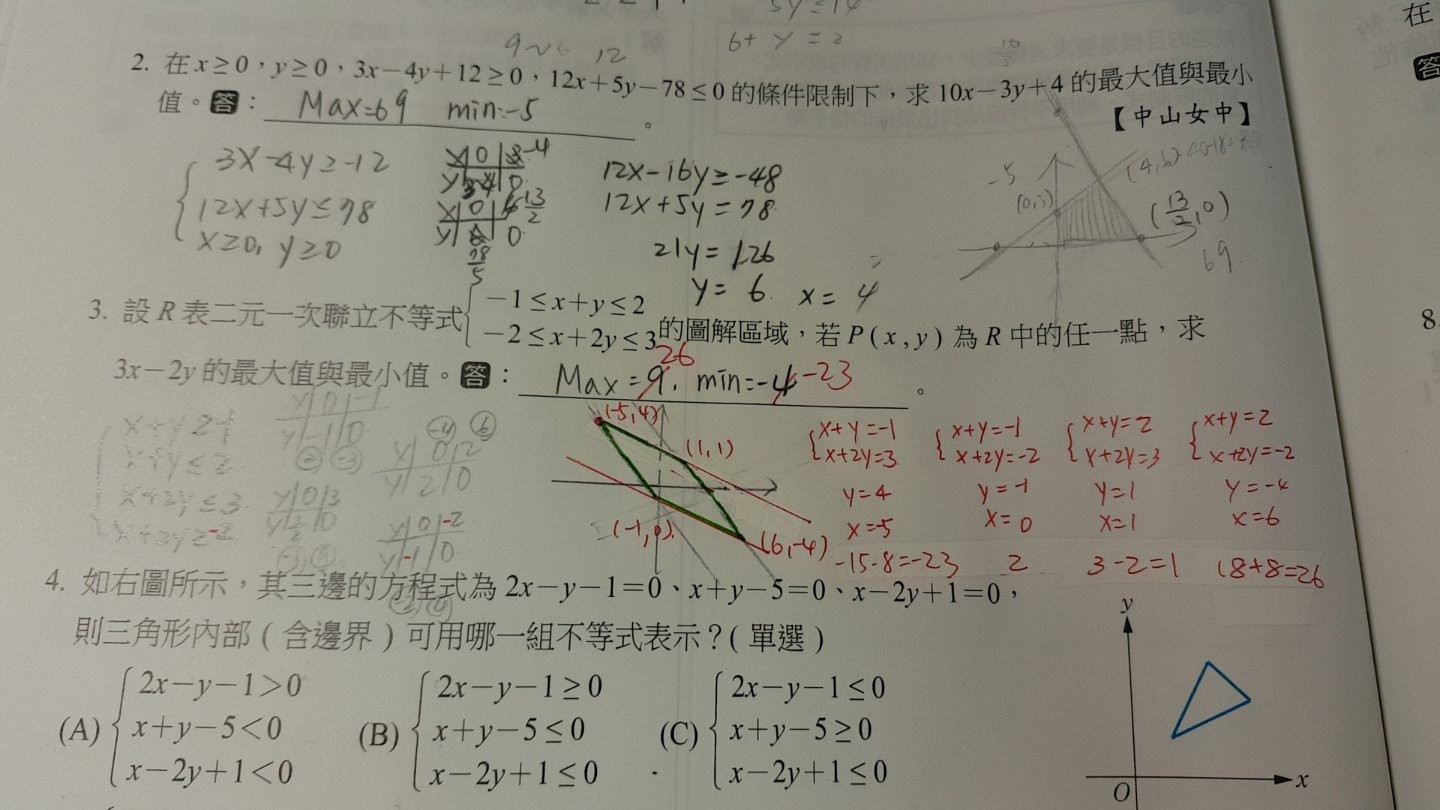 5y≤14
6+ y = 2
在
答
2. 在 x≥0,y≥0,3x−4y+12≥0,12x+5y−78≤0 的條件限制下,求 10x−3y+4 的最大值與最小
值。答: Max=69 min=-5 。
【中山女中】
3x-4y≥-12
12x+5y≤78
x≥0, y≥0
12x-16y≥-48
12x+5y=78
21y=126
y=6 x=4
-5
(0,3)
(13/2,0)
69
3. 設 R 表二元一次聯立不等式 −1≤x+y≤2
−2≤x+2y≤3 的圖解區域,若 P(x,y) 為 R 中的任一點,求
3x−2y 的最大值與最小值。答: Max=9. 26 min=-4 -23 。
8
x+y≥-1
x+y≤2
x+2y≤3
x+2y≥-2
(-5,4)
(1,1)
(-1,0)
(6,-4)
x+y=-1 x+y=-1 x+y=2 x+y=2
x+2y=3 x+2y=-2 x+2y=3 x+2y=-2
y=4 y=-1 y=1 y=-4
x=-5 x=0 x=1 x=6
-15-8=-23 2 3-2=1 18+8=26
4. 如右圖所示,其三邊的方程式為 2x−y−1=0、x+y−5=0、x−2y+1=0,
則三角形內部(含邊界)可用哪一組不等式表示?(單選)
(A) 2x−y−1>0
x+y−5<0
x−2y+1<0
(B) 2x−y−1≥0
x+y−5≤0
x−2y+1≤0
(C) 2x−y−1≤0
x+y−5≥0
x−2y+1≤0
y
O
x